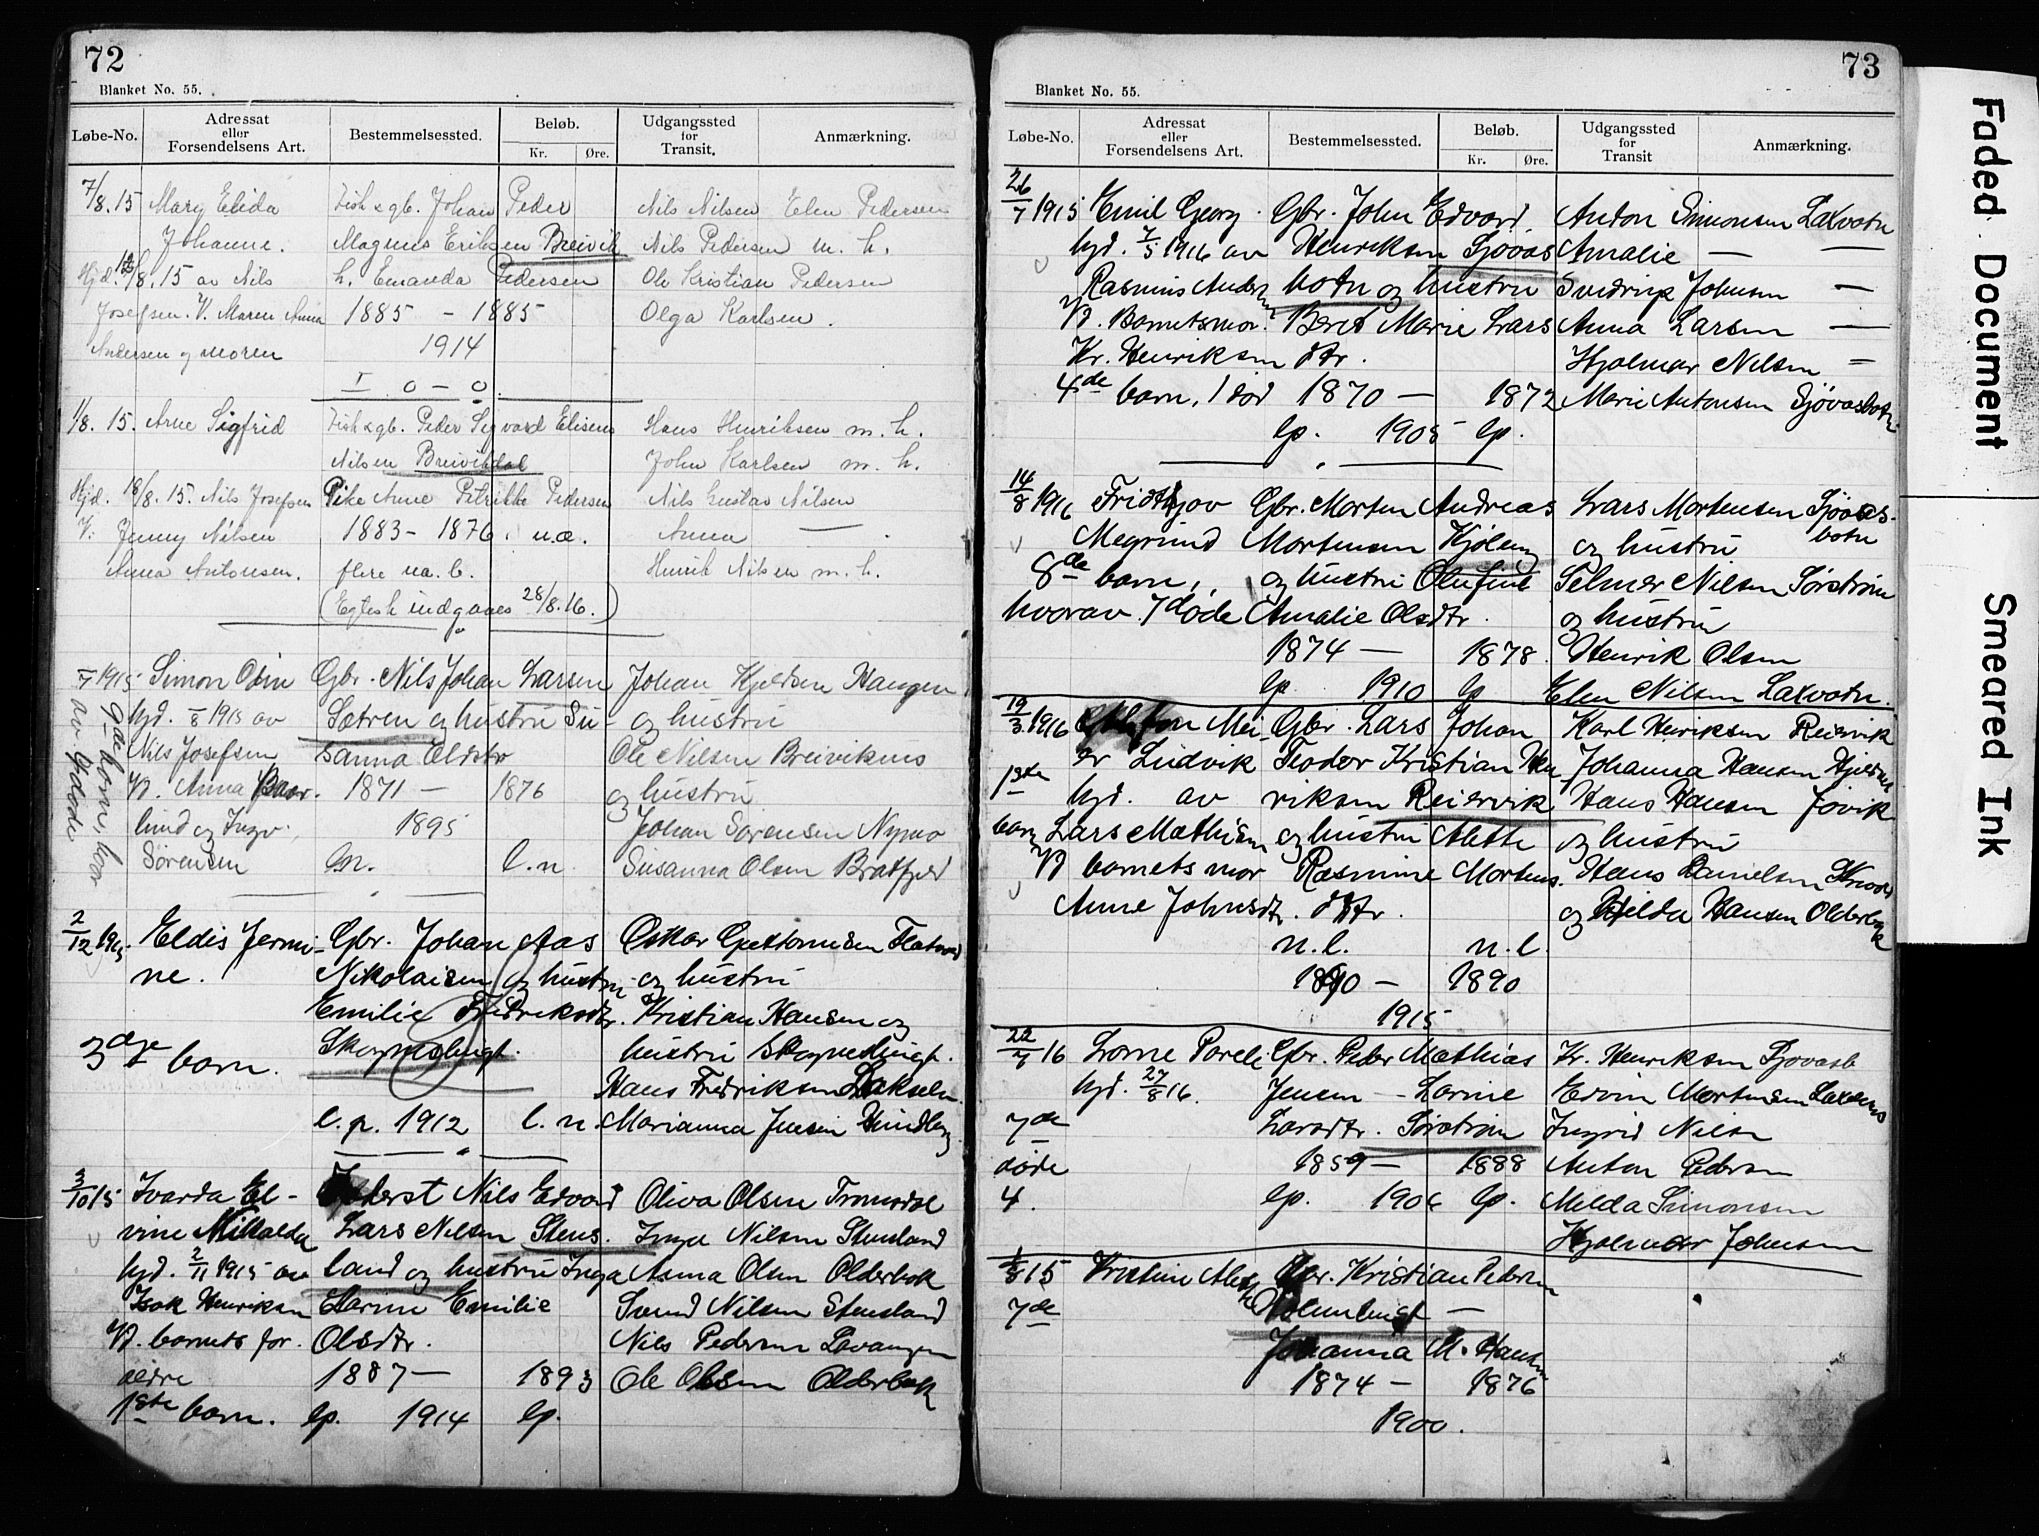 72
Blanket No. 55.
Løbe-No. Adressat eller Forsendelsens Art. Bestemmelsessted. Beløb. Kr. Øre. Udgangssted for Transit. Anmærkning.
7/8.15 Mary Elida Fisk & gb. Johan Peder Nils Nilsen Elen Pedersen
Johanne. Magnus Eriksen Breivik Nils Pedersen m. h.
Hjd. /8.15 av Nils h. Emanda Pedersen Ole Kristian Pedersen
Josefsen. V. Maren Anna 1885 - 1885 Olga Karlsen.
Andersen og moren 1914
I 0 - 0.
1/8. 15. Arne Sigfrid Fisk & gb. Peder Sigvard Elisens Hans Henriksen m. h.
Nilsen Breivikdal John Karlsen m. h.
Hjd. 18/8. 15. Nils Josefsen Pike Anne Petrikke Pedersen Nils Gustav Nilsen
V: Jenny Nilsen 1883 - 1876. u.æ. Anna —
Anna Antonsen. flere ua. b. Henrik Nilsen m. h.
(Egtesk indgaaes 28/8.16.)
1915 Simon Odin Gbr. Nils Johan Larsen Johan Kjeldsen Haugen
hjd. 1915 av Sætren og hustru Su- og hustru
Nils Josefsen sanna Oldstr Ole Nilsen Breivikmo
V. Anna 1871 — 1876 og hustru
lund og Ingv. 1895 Johan Sørensen Nymo
Sørensen m. l. n. Susanna Olsen Bratfjeld
9de barn, hvor
av 4 døde
2/12 1915 Eldis Jermi- Gbr. Johan Aas Oskar Flatvær
ne. Nikolaisen og hustru og hustru
Emilie Fredriksdtr. Kristian Hansen og
3dje barn. Skognesbugt. hustru Skognesbugt.
Hans Fredriksen Lakselv.
l. p. 1912 l. n. Marianna Jensen
3/10 15 Ivarda El- Inderst Nils Edvard Oliva Olsen Tromsdal
vine Mikalda Lars Nilsen Stens. Inga Nilsen Stensland
hjd. 2/11 1915 av land og hustru Inga Asma Olsen Olderbak
Isak Henriksen Larine Emilie Svend Nilsen Stensland
V. barnets for- Olsdtr. Nils Pedersen Lavangen
ældre 1887 — 1893 Ole Olsen Olderbak
1ste barn. lp. 1914 lp.
73
Blanket No. 55.
Løbe-No. Adressat eller Forsendelsens Art. Bestemmelsessted. Beløb. Kr. Øre. Udgangssted for Transit Anmærkning.
26/7 1915 Emil Georg. Gbr. John Edvard Anton Simonsen Laxvatn
hjd. 7/5 1916 av Henriksen Sjövas Amalie — —
Rasmus Andersen botn og hustru Svedrup Johnsen —
V. Barnetsmor. Beret Marie Lars Anna Larsen —
Kr. Henriksen dtr. Hjalmar Nilsen —
4de barn, 1 död 1870 — 1872 Marie Antonsen Sjövasbotn
lp. 1905 lp.
14/8 1916 Fridtjov Gbr. Morten Andreas Lars Mortensen Sjövas-
Megrund Mortensen Kjöleng og hustru botn
8de barn, og hustru Olufine Selmer Nilsen Sörström
hvorav 7 döde Amalie Olsdtr. og hustru
1874 — 1878. Henrik Olsen
lp. 1910 lp Elen Nilsen Laxvatn.
19/3 1916 Mei- Gbr. Lars Johan Karl Henriksen Reiervik
er Ludvik Teodor Kristian Hen Johanna Hansen
1ste hjd. av riksen Reiervik Hans Hansen Jövik
barn Lars Mathisen og hustru Alette og hustru
V barnets mor Rasmine Mortens. Hans Danielsen
Anne Johnsdtr. dtr. og Hilda Hansen Olderbak
n. l. n. l.
1890 — 1890
1915
22/7 16 Lorne Pareli Gbr. Peder Mathias Kr. Henriksen Sjövasb
hjd. 27/8 16. Jensen - Larine Edvin Mortensen
7de Larsdtr. Sörström Ingrid Nilsen
döde 1859 — 1888 Anton Pedersen
4. lp. 1906 lp. Melda Simonsen
Hjalmar Johnsen
1/8 15 Kristine Gbr. Kristian Pedersen
7de Holmbugt —
Johanna M. Hansen
1874 — 1876
1900.
Faded Document
Smeared Ink